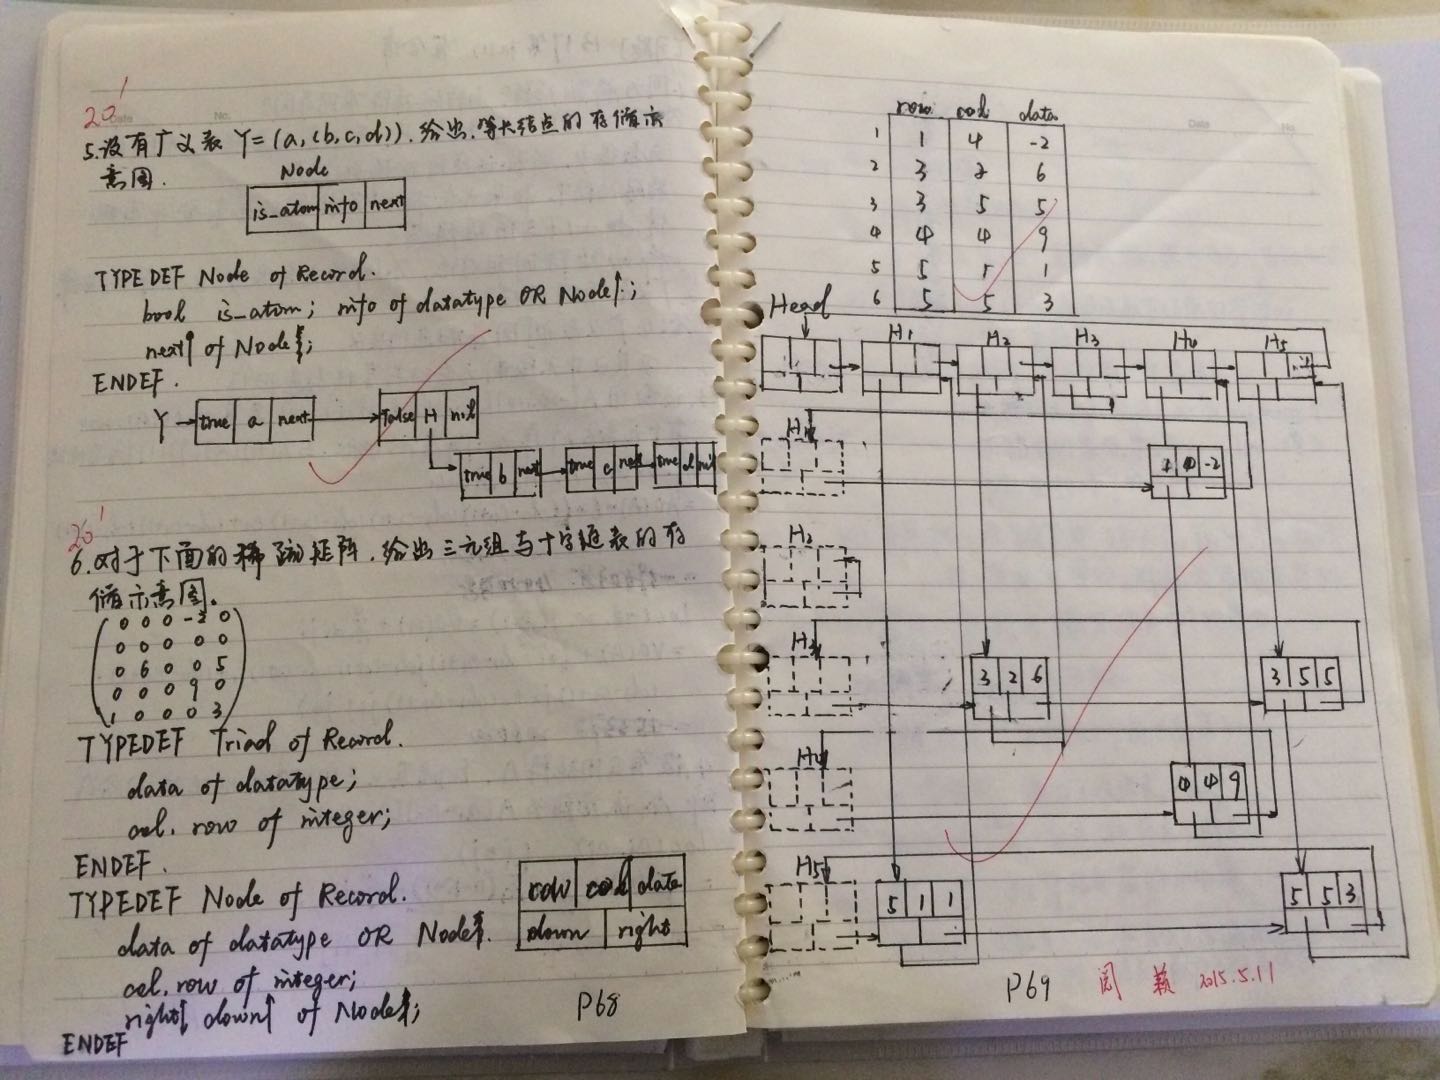 20'
5.设有广义表 Y=(a,(b,c,d)).给出,等长结点的存储示
意图.
Node
is_atom info next
TYPEDEF Node of Record.
bool is_atom; info of datatype OR Node↑;
next↑ of Node;
ENDEF.
Y true a next false H nil
true b next true c next true d nil
20'
6.对于下面的稀疏矩阵.给出三元组与十字链表的存
储示意图.
0 0 0 -2 0
0 0 0 0 0
0 6 0 0 5
0 0 0 9 0
1 0 0 0 3
TYPEDEF Triad of Record.
data of datatype;
col. row of integer;
ENDEF.
TYPEDEF Node of Record.
data of datatype OR Node.
col. row of integer;
right↑ down↑ of Node;
ENDEF
row col data
down right
P68
row col data
1 1 4 -2
2 3 2 6
3 3 5 5
4 4 4 9
5 5 1 1
6 5 5 3
Head
H1 H2 H3 H4 H5
H1
1 4 -2
H2
H3
3 2 6
3 5 5
H4
4 4 9
H5
5 1 1
5 5 3
P69 阅 2015.5.11